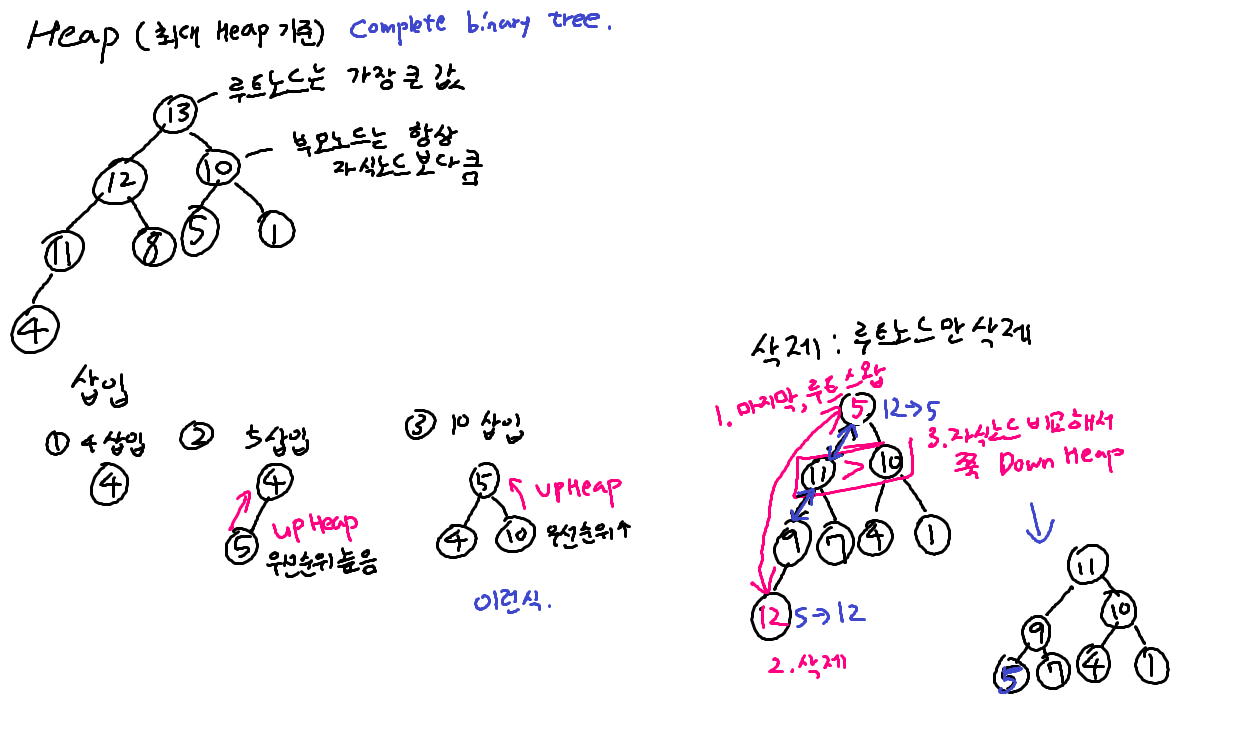 Heap (최대 Heap 기준) Complete binary tree.
13 루트노드는 가장 큰 값
12 10 부모노드는 항상
자식노드보다 큼
11 8 5 1
4
삽입
① 4 삽입
4
② 5 삽입
4
upHeap
5 우선순위 높음
③ 10 삽입
5
upHeap
4 10 우선순위↑
이런식.
삭제 : 루트노드만 삭제
1. 마지막, 루트 스왑
5 12→5
3. 자식노드 비교해서
쭉 Down Heap
11 > 10
9 7 4 1
12 5→12
2. 삭제
11
9 10
5 7 4 1